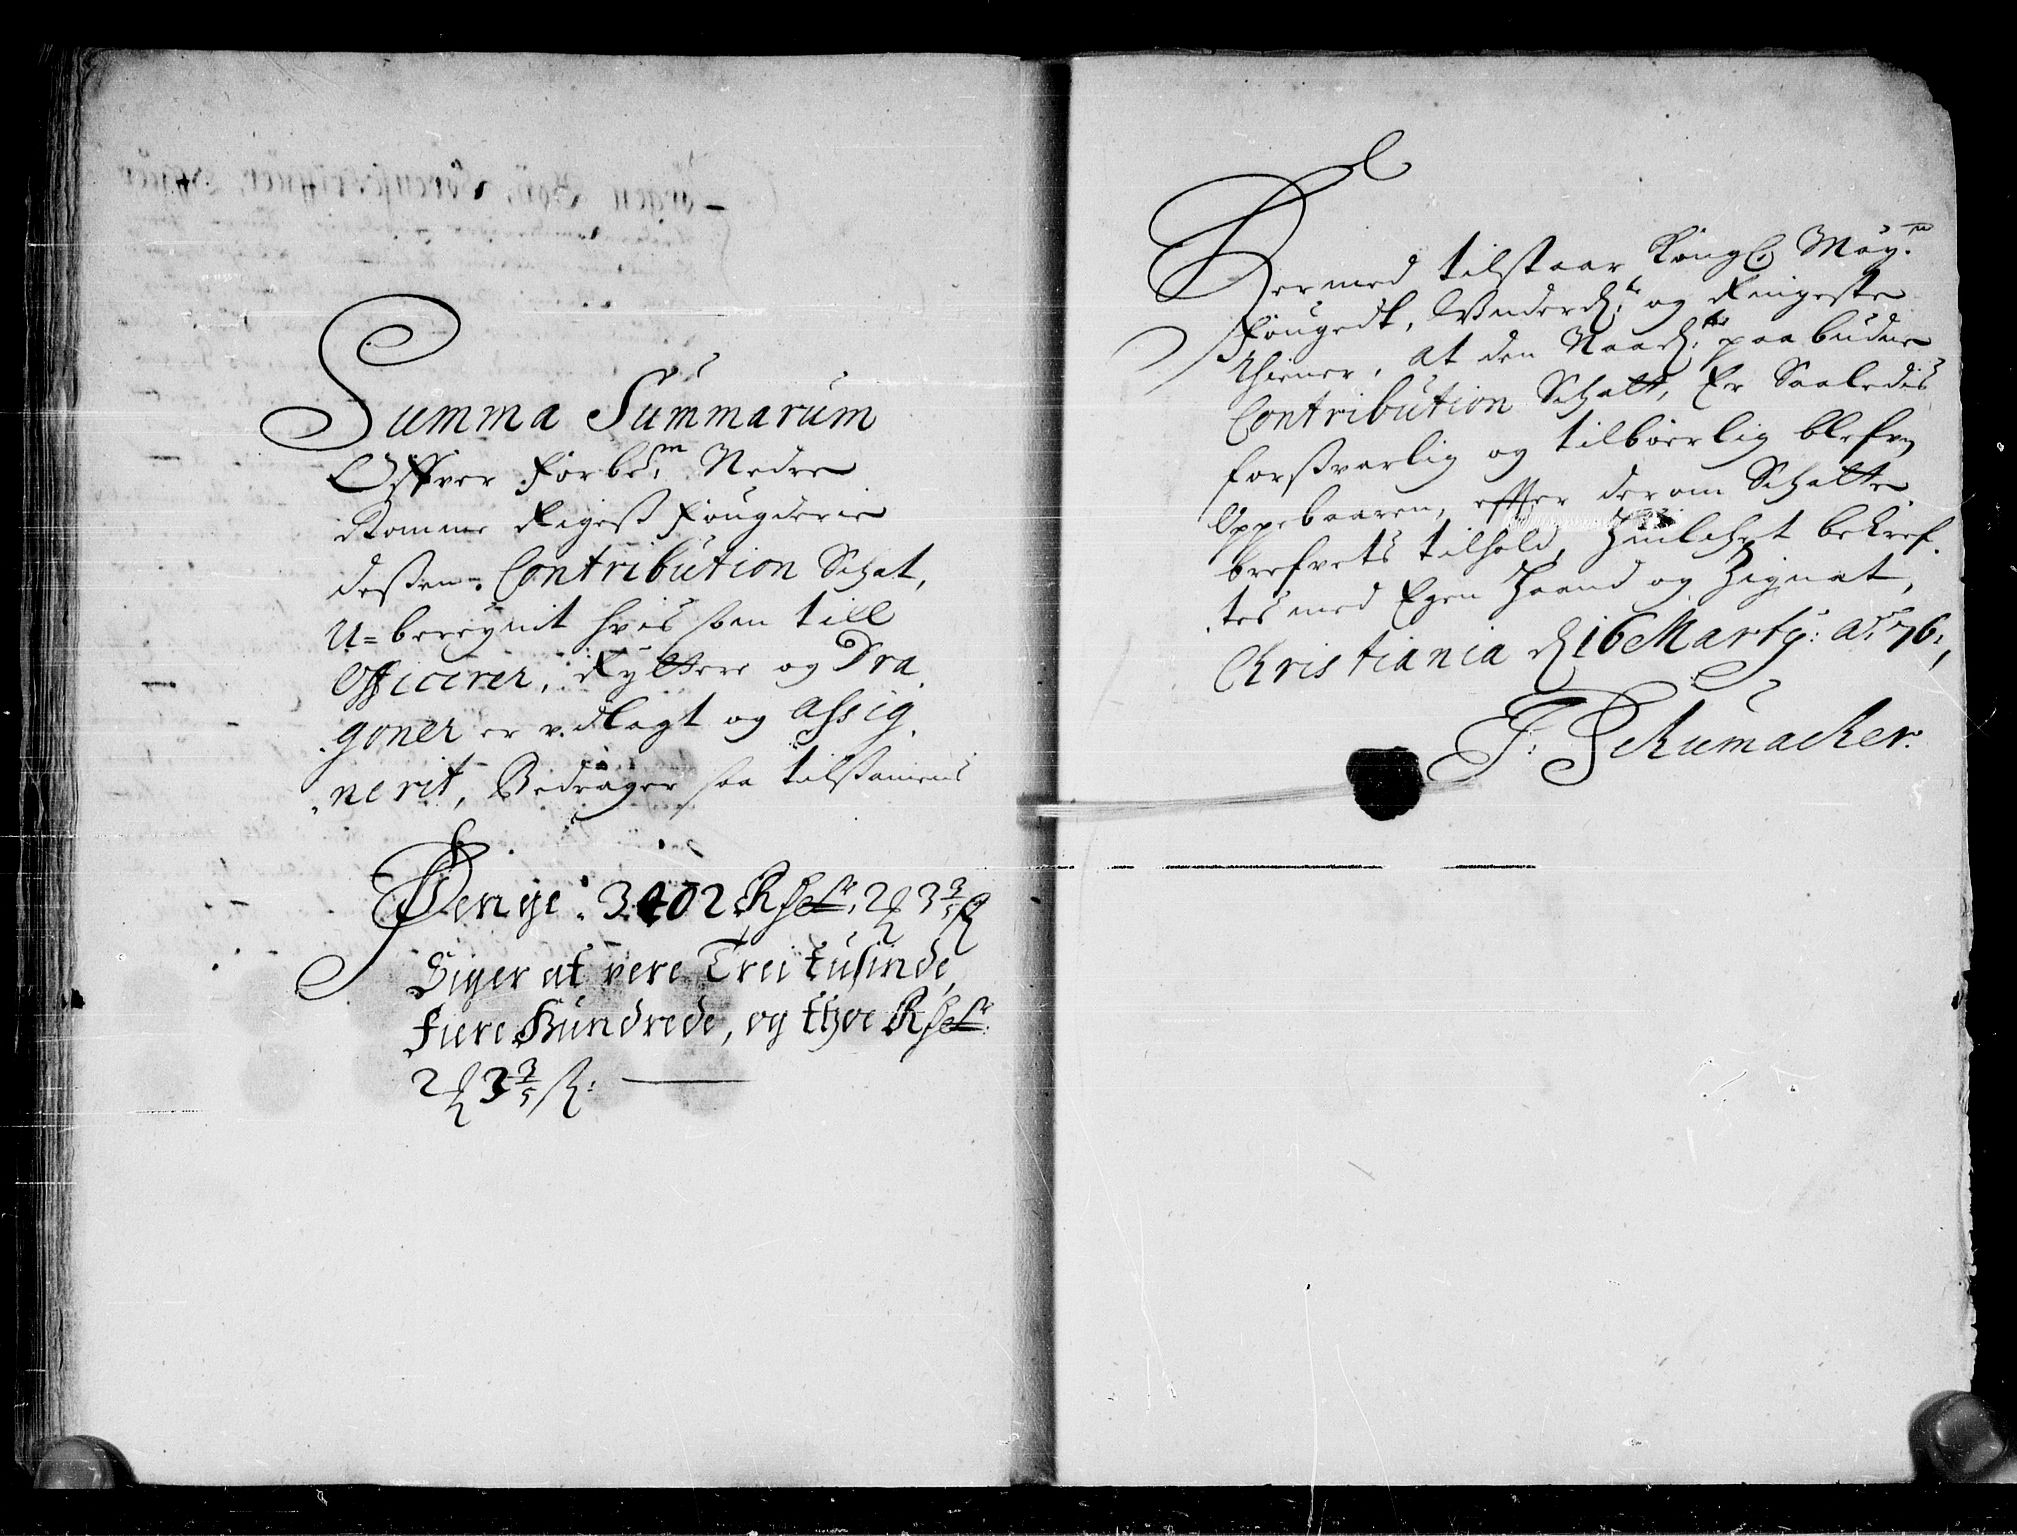 Summa Summarum
Offver forbe.m Nedre
Romme Rigeß fougderie
deßen Contribution Schat,
U=beregnit hvis som till
Officerer, Ryttere og Dra
goner er vdlagt og Assig
nerit, Bedrager saa tilsamens
Penge. 3402 Rdlr. 2 ƶ 3 3/5 ß
Siger at vere Trei tusinde,
fiere Hundrede, og thoe Rdlr:
2 ƶ 3 3/5 ß:
Hermed tilstaar Kongl. May.
fougedt, Vnderd. og Ringeste
Thiener, at den Naad. paabudne
Contribution Schatt, Er Saaledis
forsvarlig og tilbørlig blefven
Oppebaaren, effter derom Schatte
brefvets tilhold, Huilchet bekref
tes med Egen Haand og Zignet,
Christiania d 16 Marty: Ao. 76.
F: Schumacker.